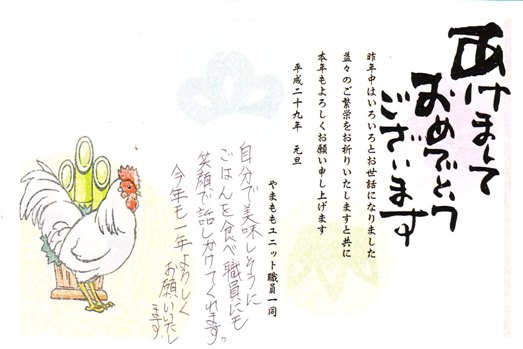 あけまして
おめでとう
ございます
昨年中はいろいろとお世話になりました
益々のご繁栄をお祈りいたしますと共に
本年もよろしくお願い申し上げます
平成二十九年 元旦
やまももユニット職員一同
自分で美味しそうに
ごはんを食べ職員にも
笑顔で話しかけてくれます。
今年も一年よろしく
お願いいたし
ます。